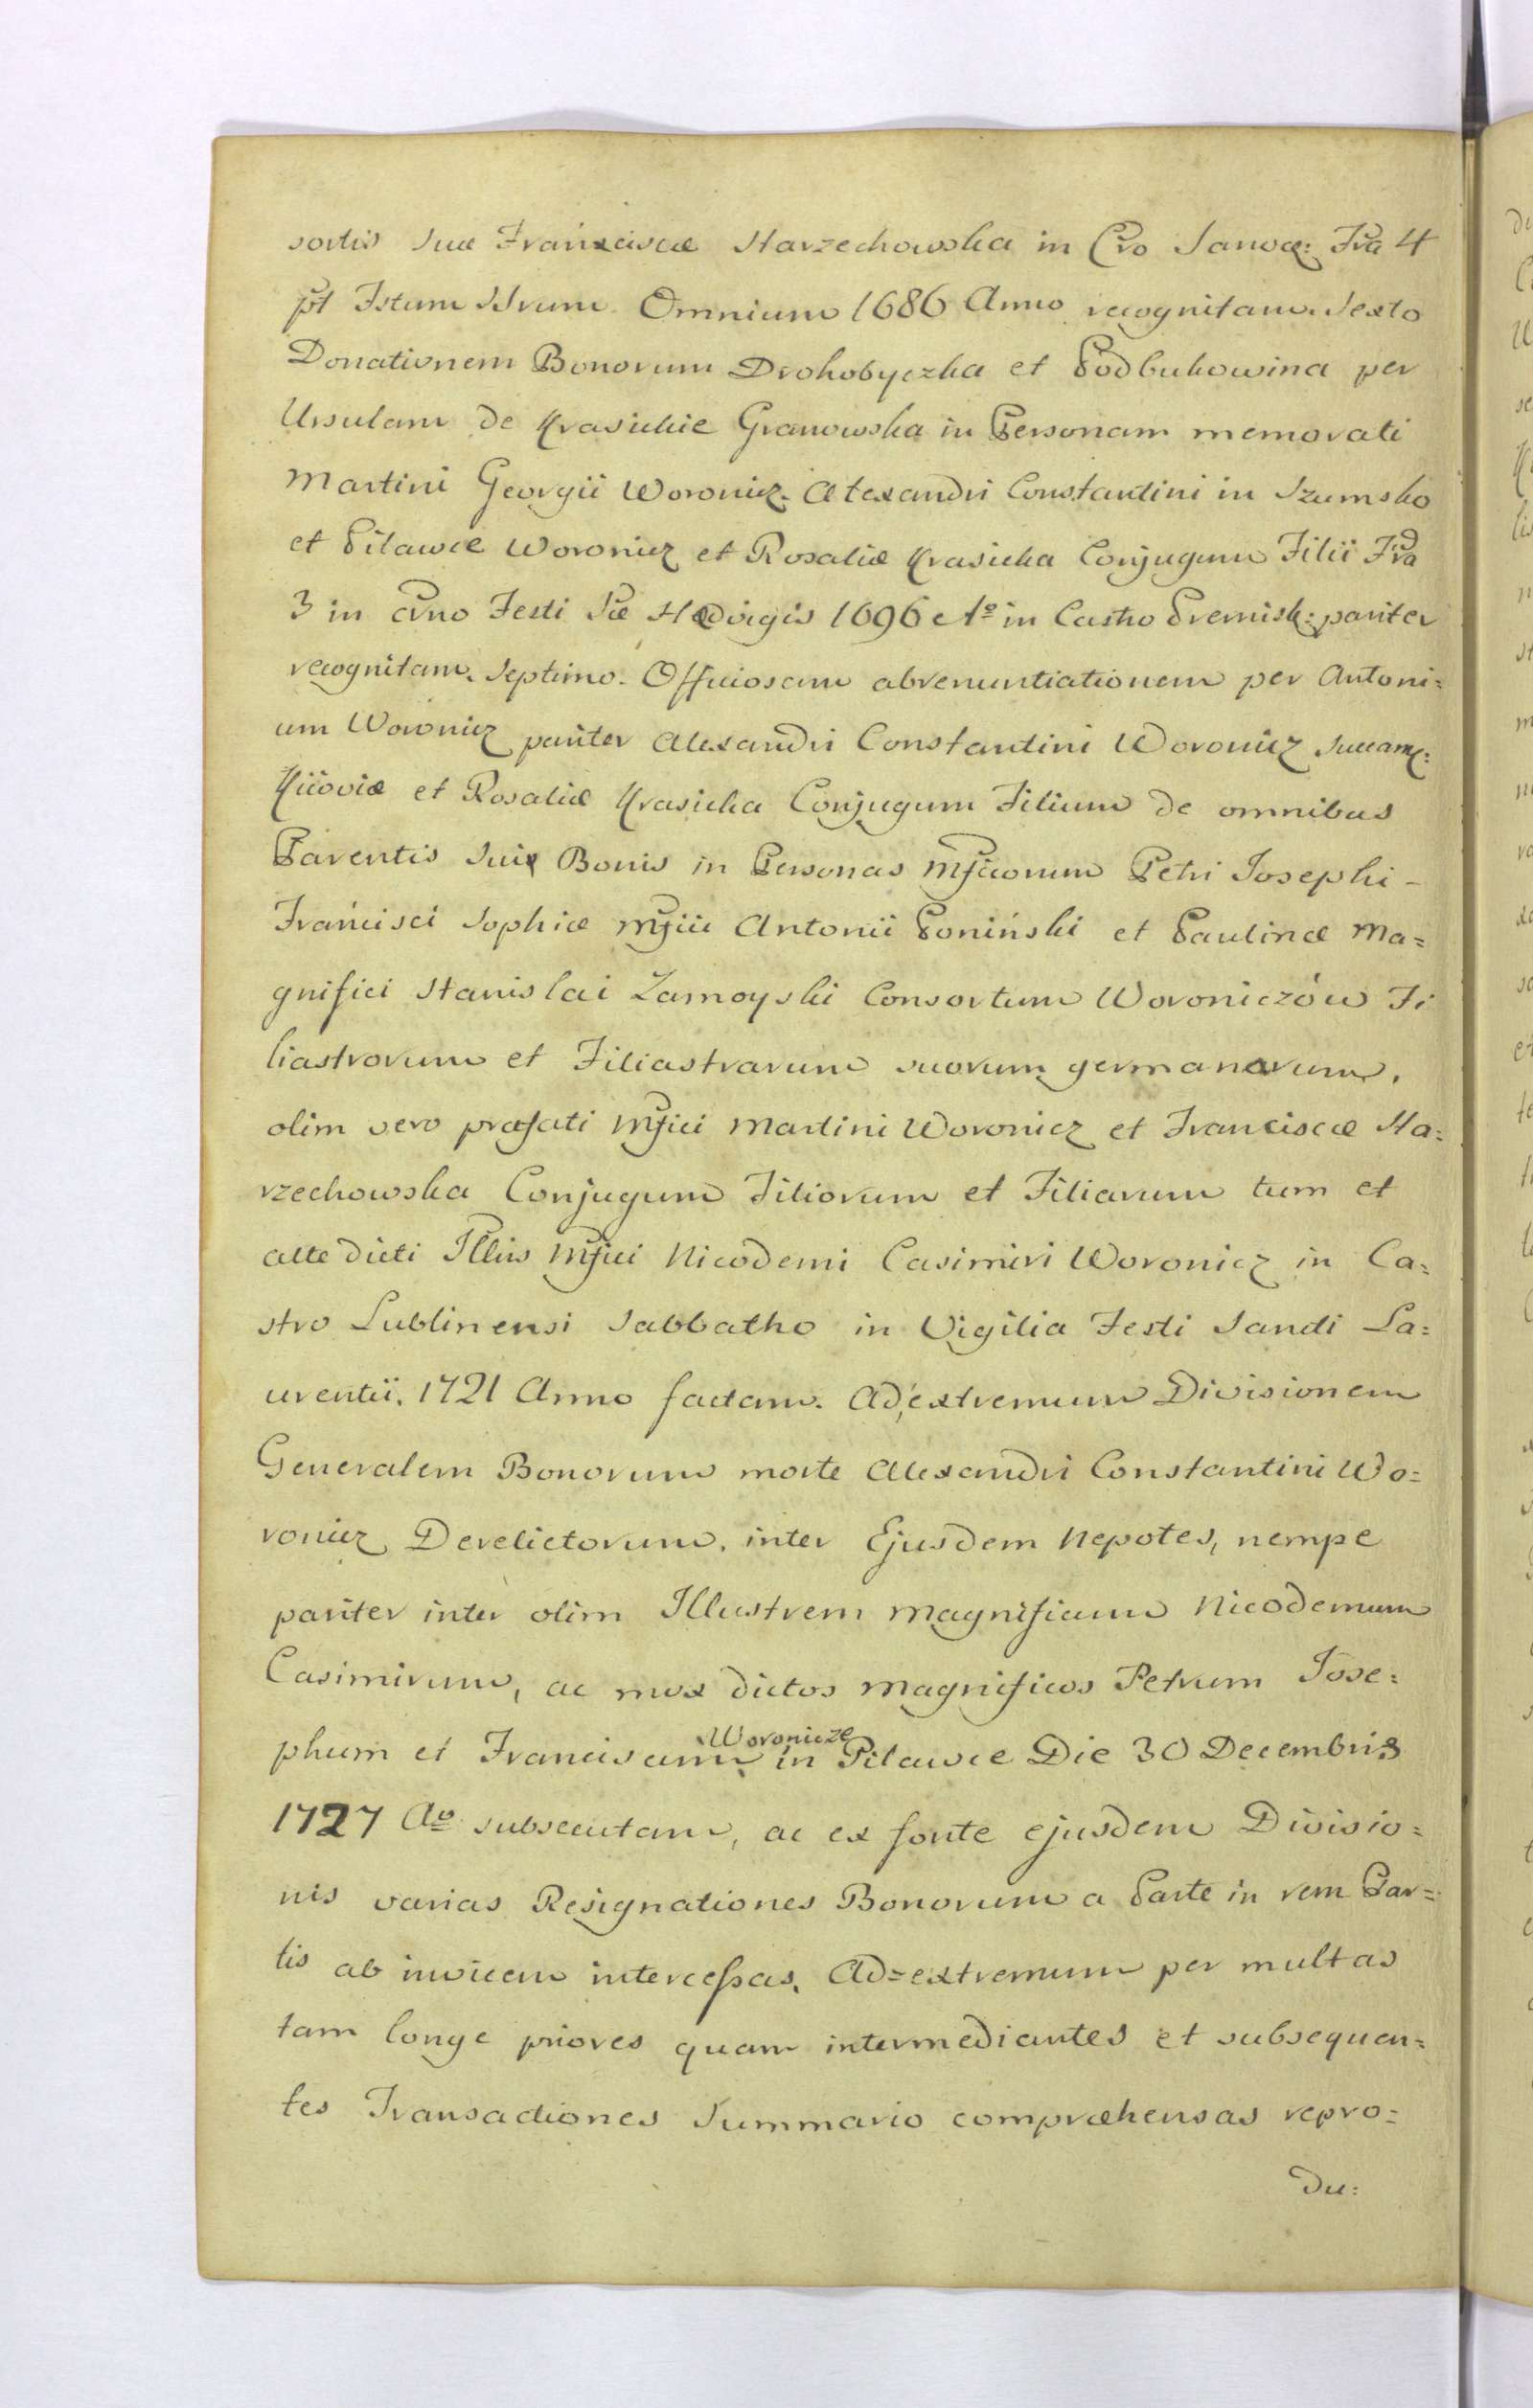 sortis suæ Franciscæ Starzechowska in Cro Sanoc: Fra 4
pt Fstum SSrum Omnium 1686 Anno recognitam. Sexto
Donationem Bonorum Drohobyczka et Podbukowina per
Ursulam de Krasickie Granowska in Personam memorati
Martini Georgii Woronicz. Alexandri Constantini in Szumsko
et Pilawce Woronicz et Rosaliæ Krasicka Conjugum Filii Fra
3 in crno Festi Sæ Hedvigis 1696 Ao in Castro Premisl: pariter
recognitam. Septimo. Officiosam abrenuntiationem per Antoni=
um Woronicz pariter Alexandri Constantini Woronicz Succam:
Kijoviæ et Rosaliæ Krasicka Conjugum Filium de omnibus
Parentis Suis Bonis in Personas Mficorum Petri Josephi -
Francisci Sophiæ Mfici Antonii Poniński et Paulinæ Ma=
gnifici Stanislai Zamoyski Consortum Woroniczów Fi
liastrorum et Filiastrarum suorum germanorum,
olim vero præfati Mfici Martini Woronicz et Franciscæ Sta=
rzechowska Conjugum Filiorum et Filiarum tum et
alte dicti Illris Mfici Nicodemi Casimiri Woronicz in Ca=
stro Lublinensi Sabbatho in Vigilia Festi Sancti La=
urentii. 1721 Anno factam. Ad extremum Divisionem
Generalem Bonorum morte Alexandri Constantini Wo=
ronicz Derelictorum, inter Ejusdem Nepotes, nempe
pariter inter olim Illustrem Magnificum Nicodemum
Casimirum, ac mox dictos Magnificos Petrum Jose=
phum et Franciscum Woronicze in Pilawce Die 30 Decembris
1727 Ao subsecutam, ac ex fonte ejusdem Divisio=
nis varias Resignationes Bonorum a Parte in rem Par=
tis ab invicem intercessas. Ad=extremum per multas
tam longe priores quam intermediantes et subsequen=
tes Transactiones Summario compræhensas repro=
du: